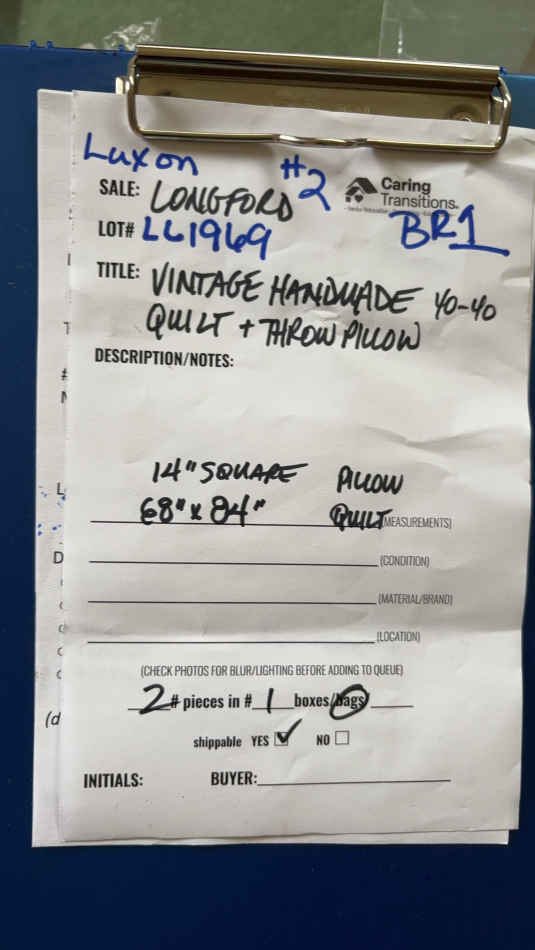 Luxon #2
SALE: LONGFORD
Caring
Transitions.
LOT# LL1969
BR1
TITLE: VINTAGE HANDMADE YO-YO
QUILT + THROW PILLOW
DESCRIPTION/NOTES:
14" SQUARE PILLOW
68" x 84" QUILT (MEASUREMENTS)
(CONDITION)
(MATERIAL/BRAND)
(LOCATION)
(CHECK PHOTOS FOR BLUR/LIGHTING BEFORE ADDING TO QUEUE)
2 # pieces in # 1 boxes/bags
shippable YES ✓ NO
INITIALS: BUYER: